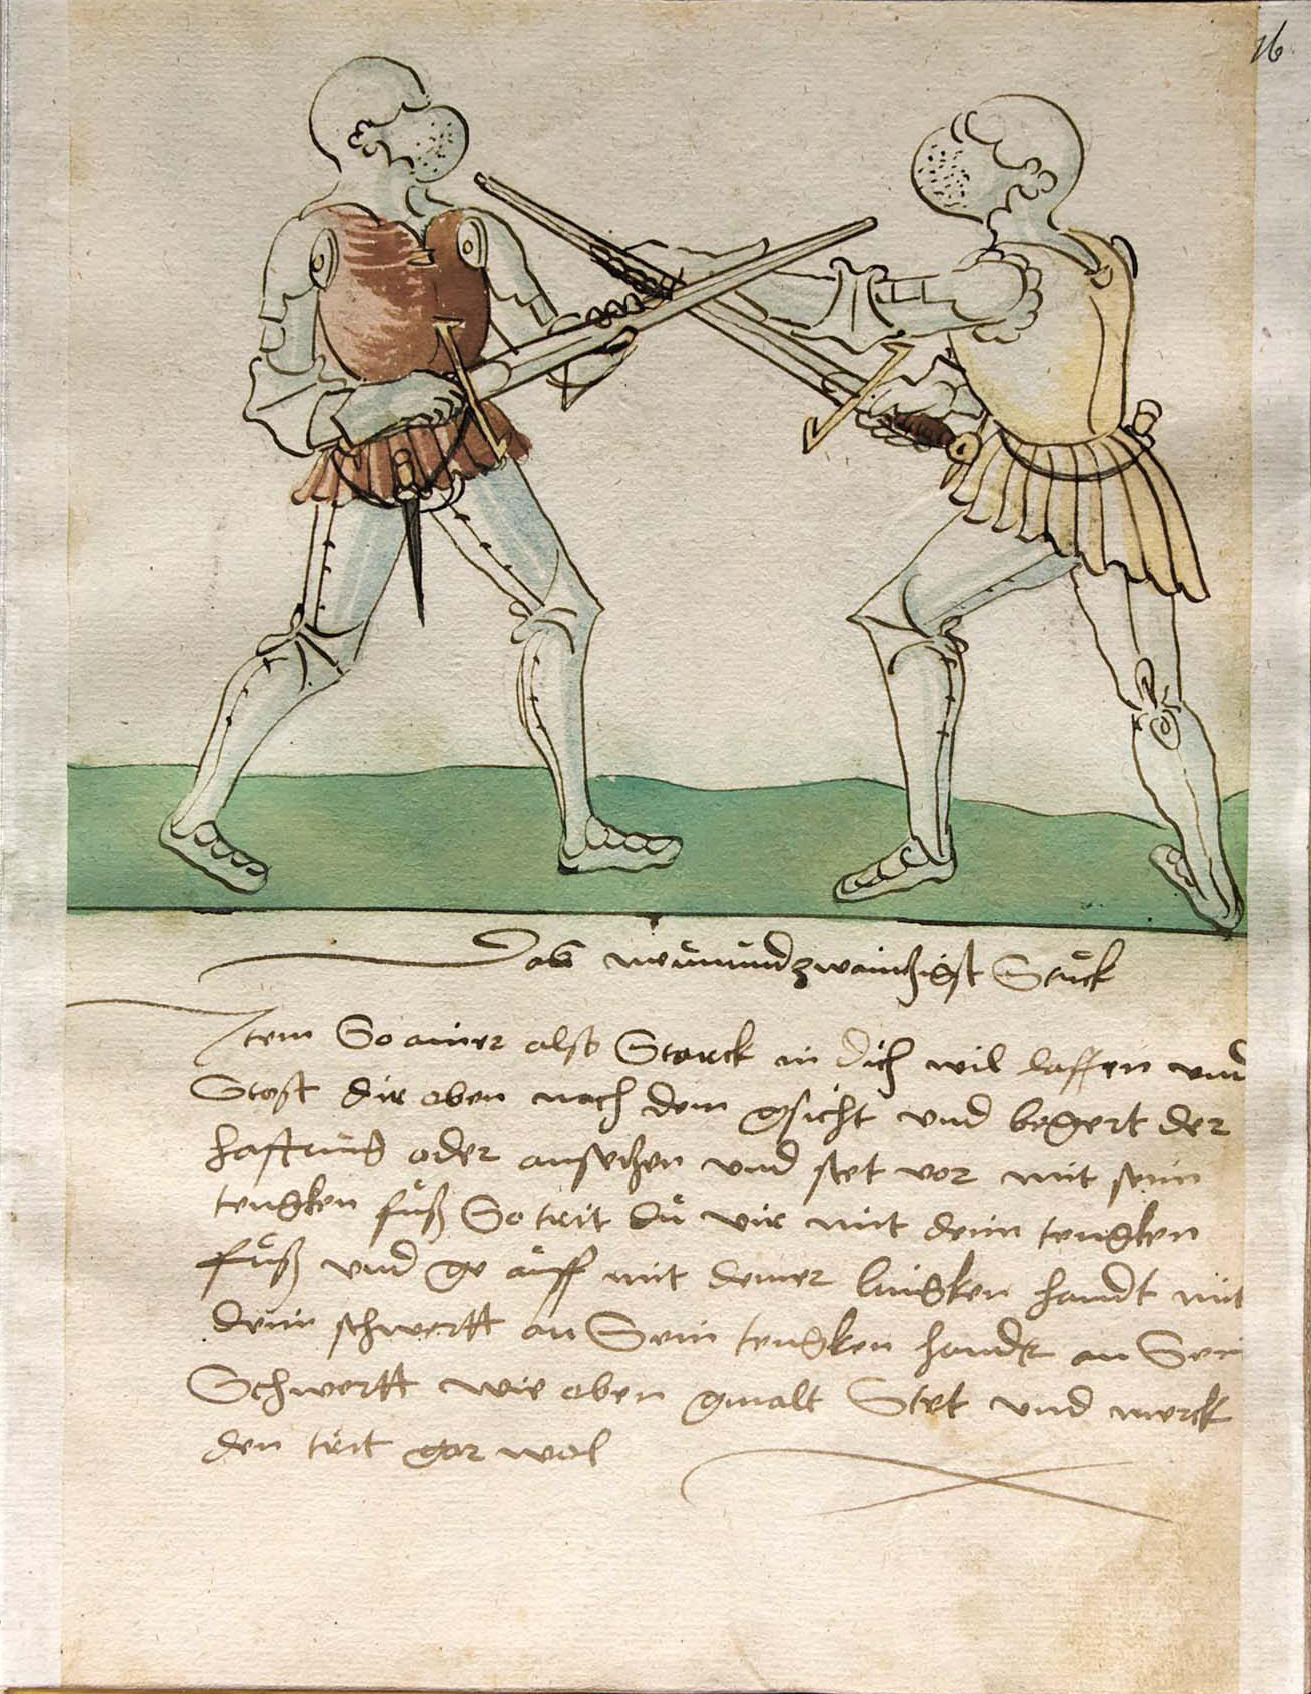 16
Das neunundzwaintzigist Stuck
Item So ainer also Starck in dich wil lauffen und
Stost dir oben nach dem gsicht und begert der
hafftung oder ansetzen und stet vor mit sein
tengken fuß So trit du vir mit deim tengken
fuß und ge auff mit deiner lingken handt mit
deim schwertt an Sein tengken handt an Sei
Schwertt wie oben gmalt Stet und merck
den trit gar wol